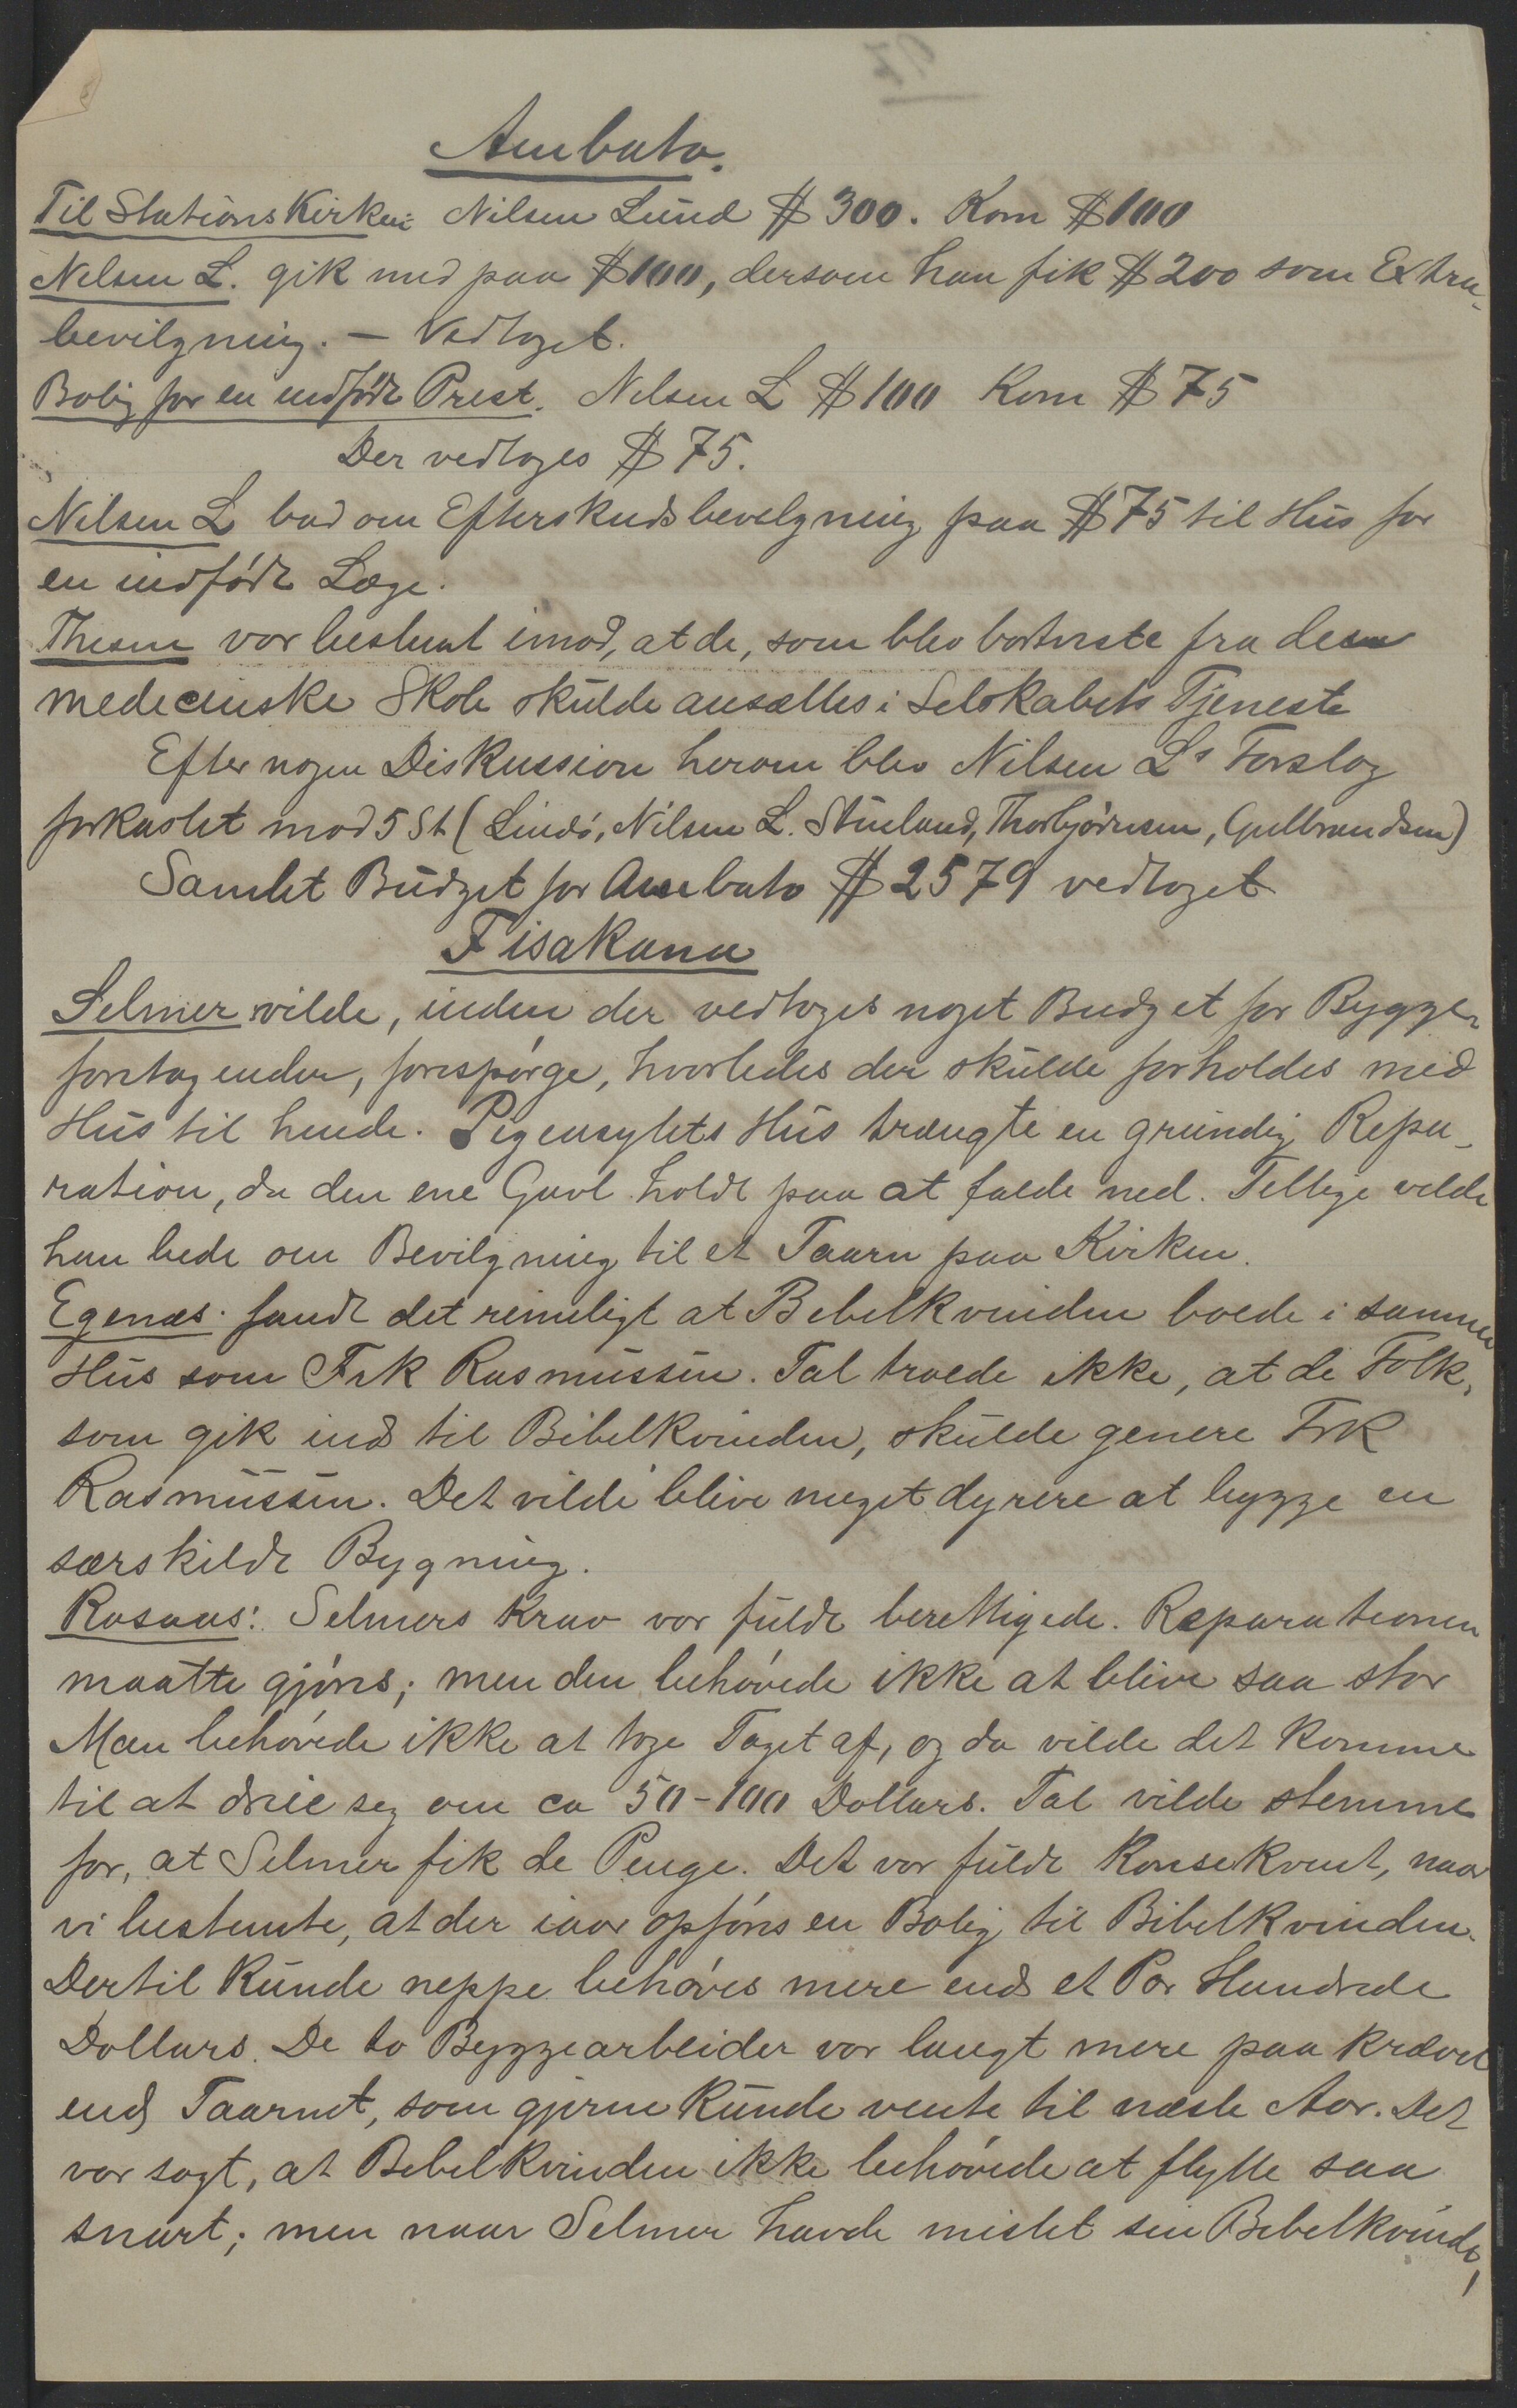 Ambato.
Til Stationskirken: Nilsen Lund $ 300. Kom $100
Nilsen L. gik med paa $100, dersom han fik $200 som Extra-
bevilgning. — Vedtaget.
Bolig for en indfødt Prest. Nilsen L $100 Kom $ 75
Der vedtoges $ 75.
Nilsen L bad om Efterskudsbevilgning paa $75 til Hus for
en indfødt Læge.
Thesen var bestemt imod, at de, som blev bortviste fra den
medecinske Skole skulde ansættes i Selskabets Tjeneste
Efter nogen Diskussion herom blev Nilsen Ls Forslag
forkastet mod 5 St (Lindø, Nilsen L. Stueland, Thorbjørnsen, Gulbrandsen)
Samlet Budget for Ambato $ 2579 vedtaget
Fisakana
Selmer vilde, inden der vedtoges noget Budget for Bygge-
foretagender, forespørge, hvorledes der skulde forholdes med
Hus til hende. Pigeasylets Hus trængte en grundig Repa-
ration, da den ene Gavl holdt paa at falde ned. Tillige vilde
han bede om Bevilgning til et Taarn paa Kirken.
Egenæs. fandt det rimeligt at Bibelkvinden boede i samme
Hus som Frk Rasmussen. Tal. troede ikke, at de Folk,
som gik ind til Bibelkvinden, skulde genere Frk
Rasmussen. Det vilde blive meget dyrere at bygge en
særskildt Bygning.
Rosaas: Selmers Krav var fuldt berettigede. Reparationen
maatte gjøres; men den behøvede ikke at blive saa stor
Man behøvede ikke at tage Taget af, og da vilde det komme
til at dreie seg om ca 50-100 Dollars. Tal vilde stemme
for, at Selmer fik de Penge. Det var fuldt Konsekvent, naar
vi bestemte, at der iaar opføres en Bolig til Bibelkvinden.
Dertil kunde neppe behøves mere end et Par Hundrede
Dollars. De to Byggearbeider var langt mere paa krævet
end Taarnet, som gjerne kunde vente til næste Aar. Det
var sagt, at Bibelkvinden ikke behøvede at flytte saa
snart; men naar Selmer havde mistet sin Bibelkvinde,